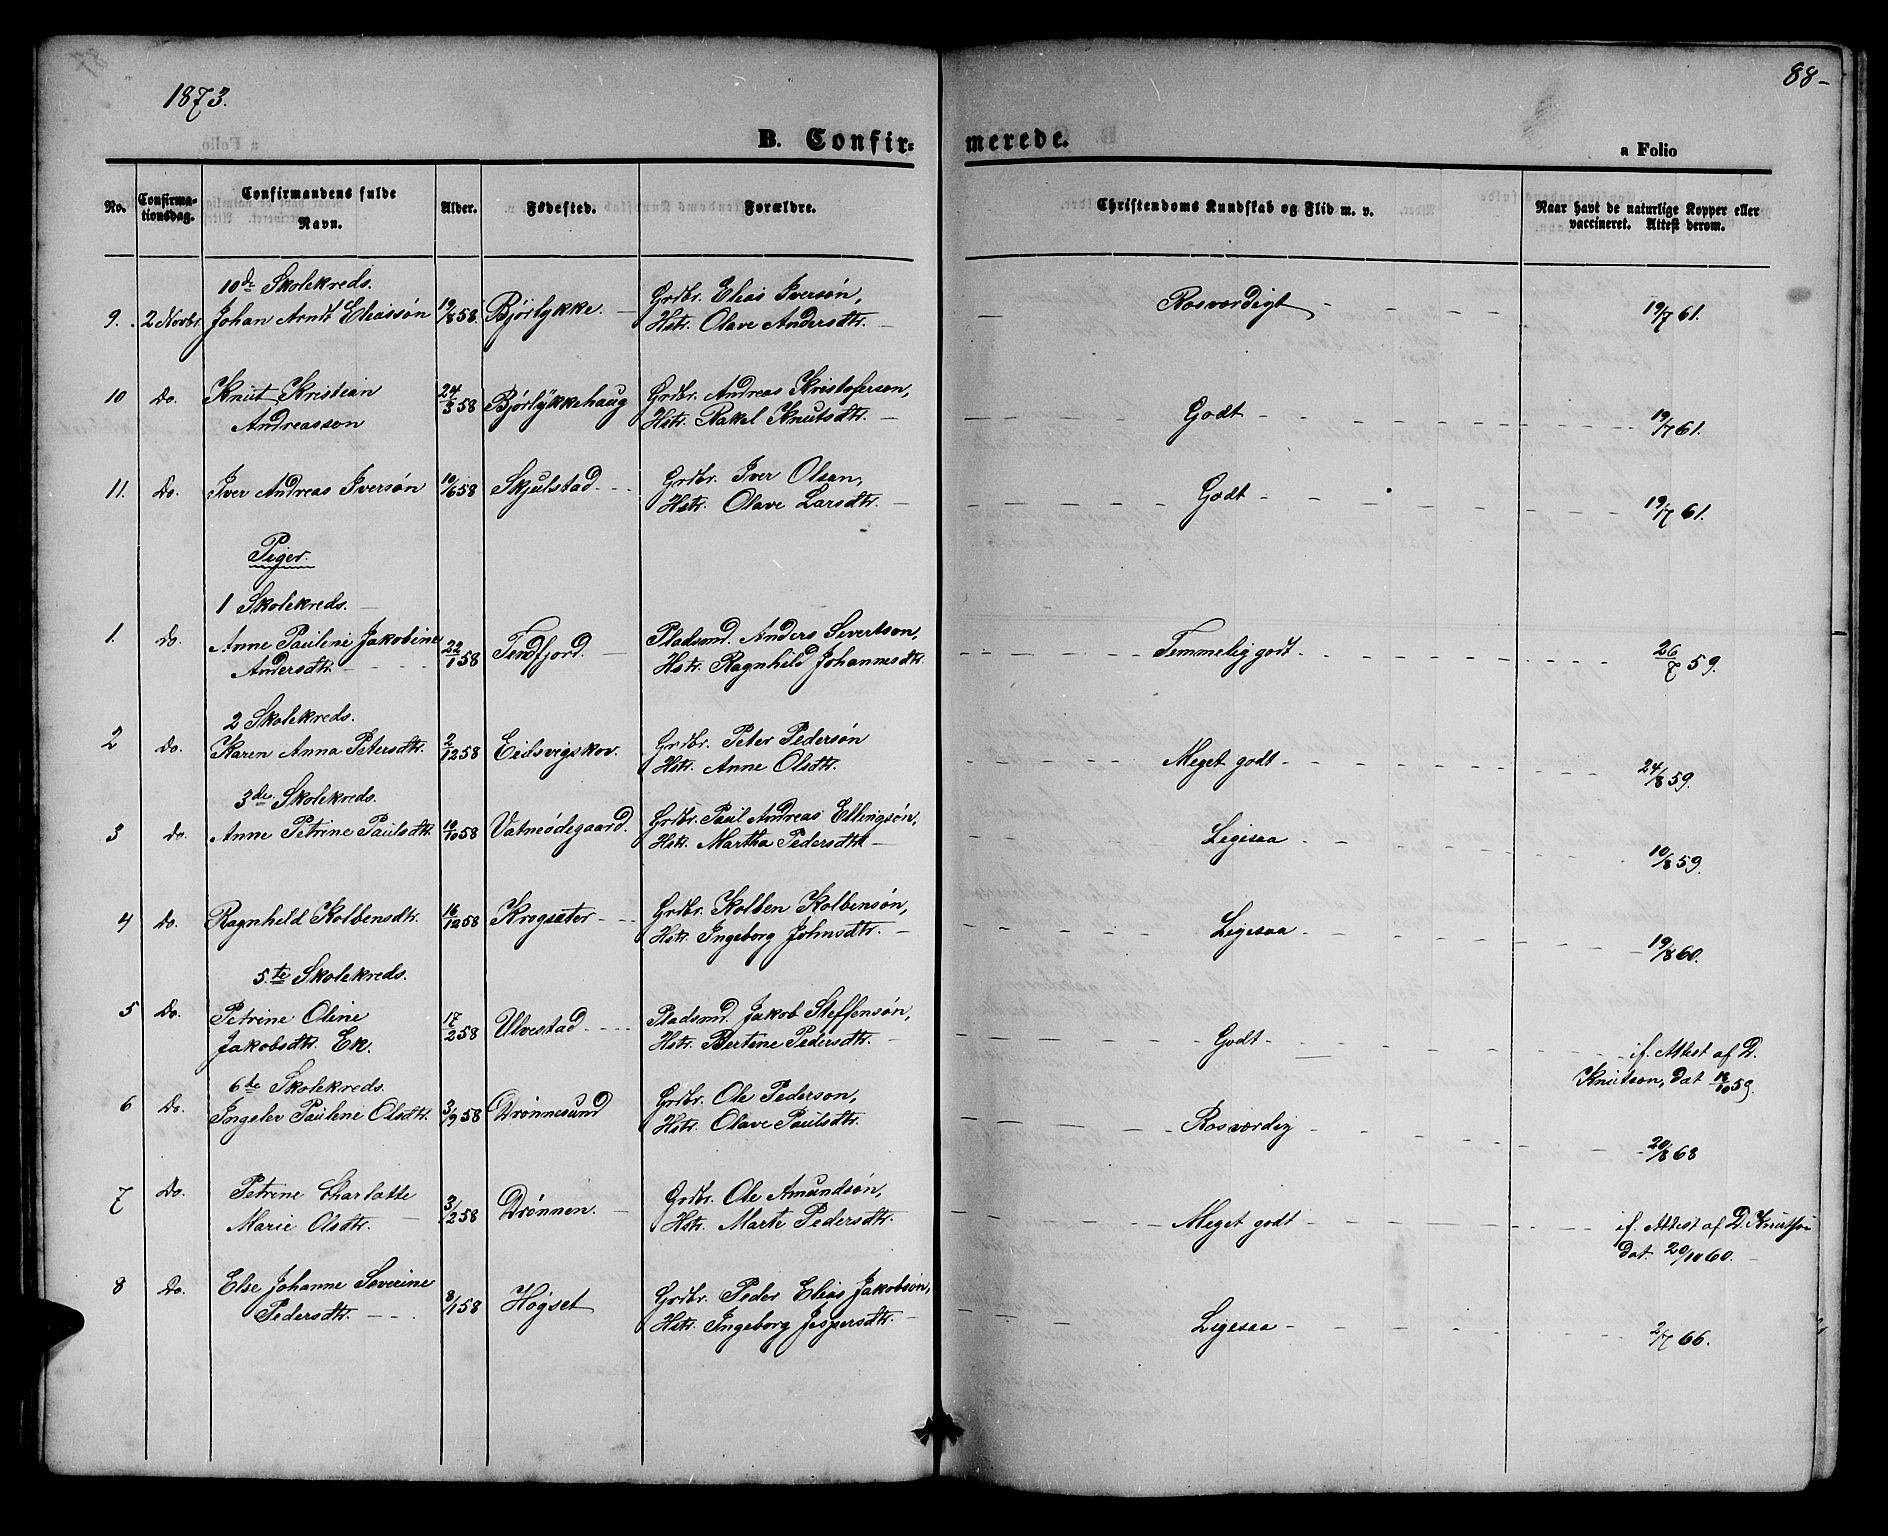 1873.
88-
B. Confir=
merede.
a Folio
No.
Confirma-
tionsdag.
Confirmandens fulde
Navn.
Alder.
Fødested.
Forældre.
Christendoms Kundskab og Flid m. v.
Naar havt de naturlige Kopper eller
vaccineret. Attest derom.
10de Skolekreds.
9. 2 Novbr. Johan Arndt Eliassøn 19/8 58. Bjørlykke. Grdbr. Elias Iversøn,
Hstr. Olave Andersdtr. Rosværdigt 19/7 61.
10 Do. Knut Kristian 24/3 58 Bjørlykkehaug Grdbr. Andreas Kristoferson,
Andreasson Hstr. Rakel Knutsdtr. Godt 19/7 61.
11. Do. Iver Andreas Iversøn 10/6 58 Skjulstad Grdbr. Iver Olsen,
Hstr. Olave Larsdtr. Godt 19/7 61.
Piger.
1 Skolekreds.
1. Do. Anne Pauline Jakobine 22/1 58 Tendfjord. Pladsmd. Anders Sivertson,
Andersdtr. Hstr. Ragnhild Johannesdtr. Temmelig godt 26/7 59.
2 Skolekreds.
2 Do. Karen Anna Petersdtr. 2/12 58 Eidsvigskov. Grdbr. Peter Pedersøn
Hstr. Anne Olsdtr. Meget godt 24/8 59.
3de Skolekreds.
3 Do. Anne Petrine Paulsdtr. 10/10 58 Vatneødegaard. Grdbr. Paul Andreas Ellingsøn,
Hstr. Martha Pedersdtr. Ligesaa 10/8 59.
4 Do. Ragnheld Kolbensdtr. 16/12 58 Krogsæter Grdbr. Kolben Kolbensøn,
Hstr. Ingeborg Johnsdtr. Ligesaa 19/8 60.
5.te Skolekreds.
5 Do. Petrine Oline 17/2 58 Ulvestad Pladsmd. Jakob Steffensøn,
Jakobsdtr. Ek. Hstr. Bertine Pedersdtr. Godt if. Attest af D.
Knutson, dat 18/10 59.
6te Skolekreds.
6 Do. Ingelev Pauline Olsdtr. 3/9 58 Drønnesund Grdbr. Ole Pederson,
Hstr. Olave Paulsdtr. Rosværdig 20/8 68
7 Do. Petrine Charlotte 3/2 58 Drønnen. Grdbr. Ole Amundsøn,
Marie Olsdtr. Hstr. Marte Pedersdtr. Meget godt if. Attest af D. Knutson
dat 20/10 60.
8 Do. Else Johanne Severine 8/1 58 Høgset Grdbr. Peder Elias Jakobsøn,
Pedersdtr. Hstr. Ingeborg Jespersdtr. Ligesaa 2/7 66.